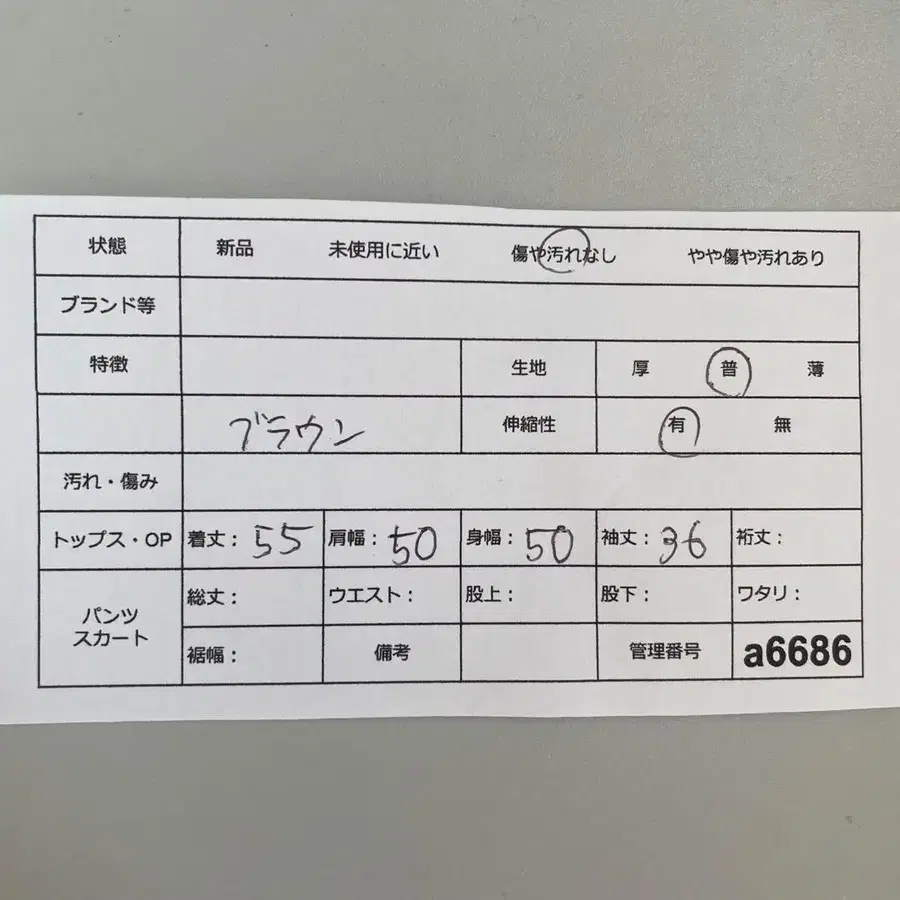 状態 新品 未使用に近い 傷や汚れなし やや傷や汚れあり
ブランド等
特徴 生地 厚 普 薄
ブラウン 伸縮性 有 無
汚れ・傷み
トップス・OP 着丈: 55 肩幅: 50 身幅: 50 袖丈: 36 裄丈:
パンツ
スカート
総丈: ウエスト: 股上: 股下: ワタリ:
裾幅: 備考 管理番号 a6686